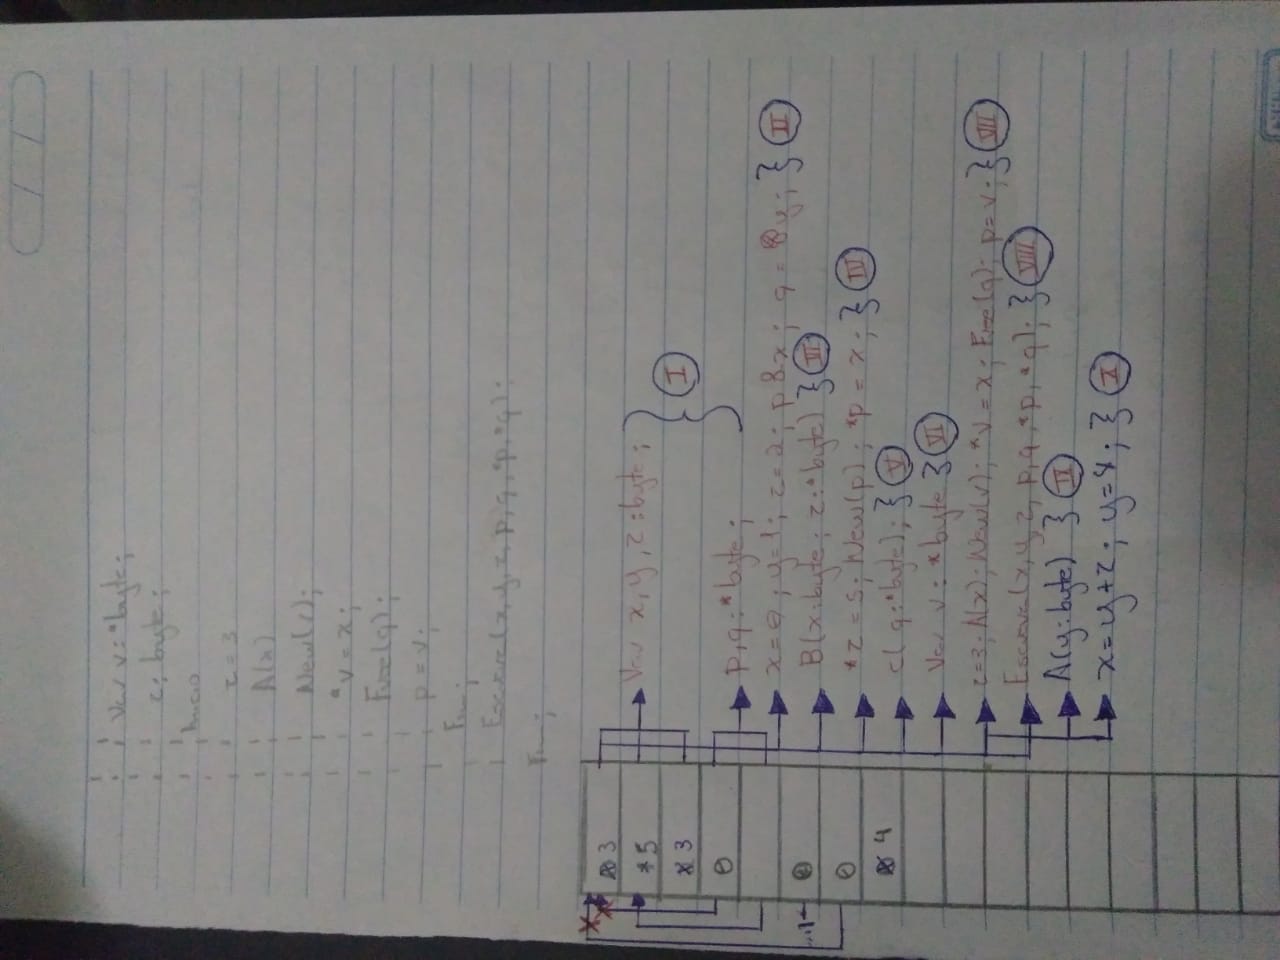 Var v: *byte;
c: byte;
Inicio
z = 3
A(x)
New(v);
*v = x;
Free(q);
p = v;
Fim;
Escreva(x, y, z, p, q, *p, *q);
Fim;
3
*5
Var x, y, z: byte;
I
3
0
p, q: *byte;
x = 0; y = 1; z = 2; p &x; q = &y; } II
0
B(x: byte; z: *byte) }
0
*z = 5; New(p); *p = x; } IV
4
C( q: *byte); } V
Var v: *byte } VI
z=3; A(x); New(v); *v = x; Free(q); p = v; } VII
Escreva(x, y, z, p, q, *p, *q); } VIII
A(y: byte) } IX
x = y + z; y = 4; } X